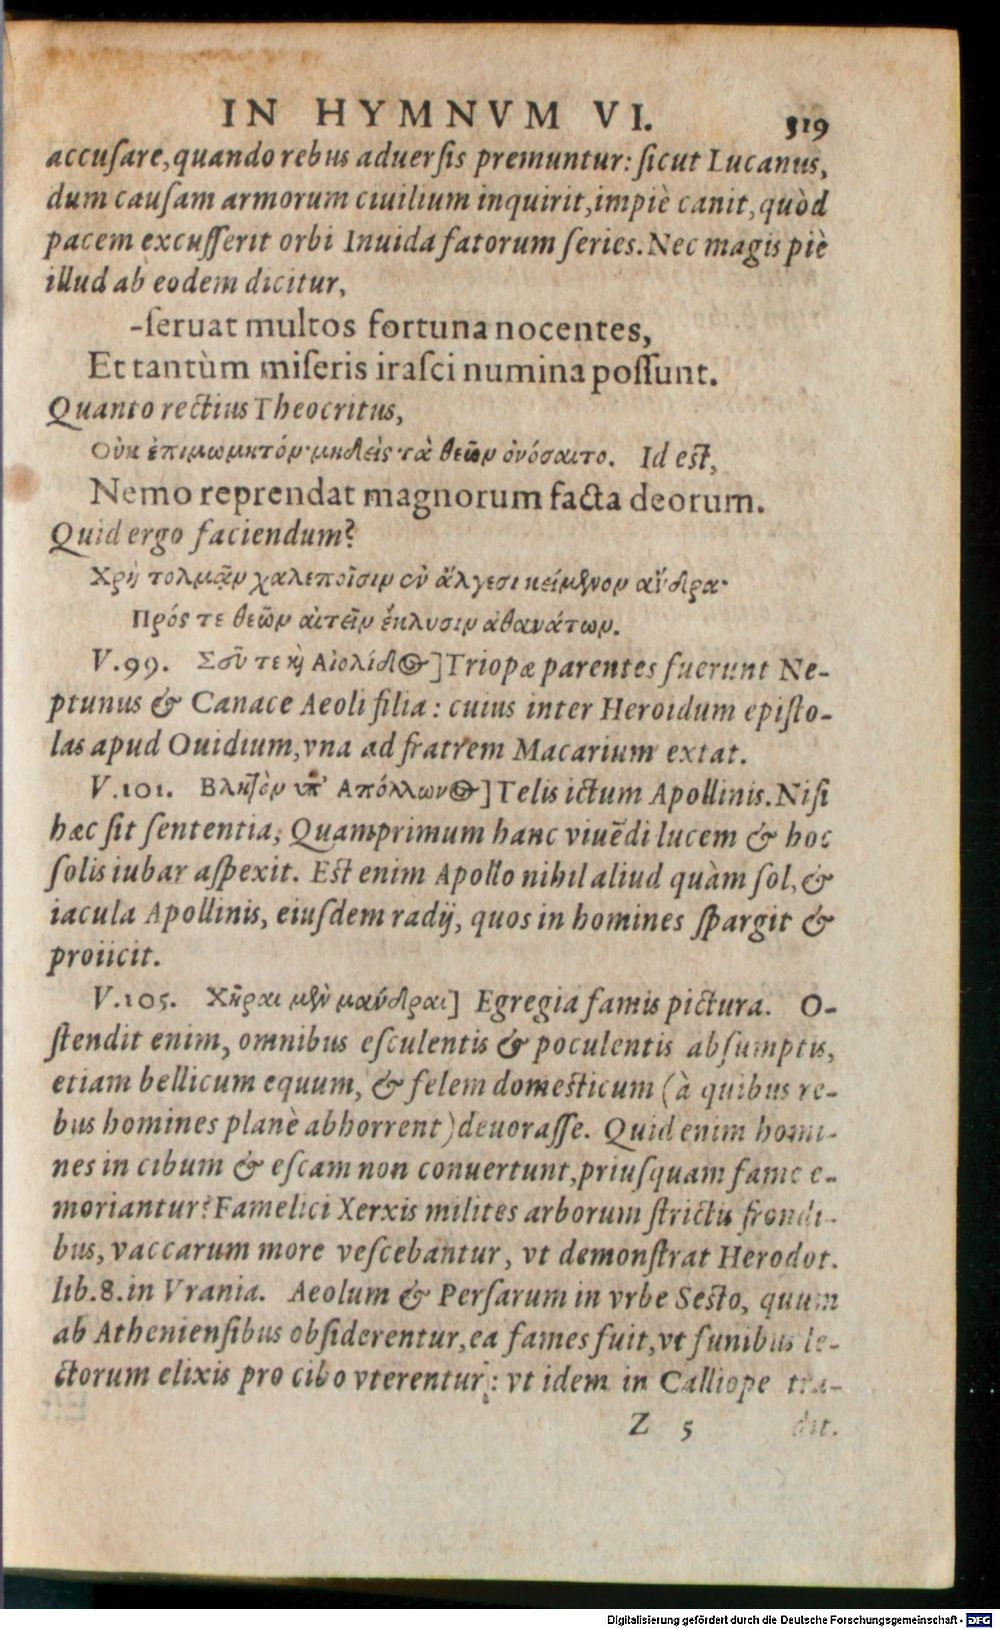 IN HYMNVM VI. 319
accuſare, quando rebus aduerſis premuntur: ſicut Lucanus,
dum cauſam armorum ciuilium inquirit, impiè canit, quòd
pacem excuſſerit orbi Inuida fatorum ſeries. Nec magis piè
illud ab eodem dicitur,
-ſeruat multos fortuna nocentes,
Et tantùm miſeris iraſci numina poſſunt.
Quanto rectius Theocritus,
Οὐκ ἐπιμωμητόν· μηδεὶς τὰ θεῶν ὀνόσαιτο. Id eſt,
Nemo reprendat magnorum facta deorum.
Quid ergo faciendum?
Χρὴ τολμᾷν χαλεποῖσιν ἐν ἄλγεσι κείμενον ἄνδρα·
Πρός τε θεῶν αἰτεῖν ἔκλυσιν ἀθανάτων.
V.99. Σοῦ τε καὶ Αἰολίδος] Triopæ parentes fuerunt Ne-
ptunus & Canace Aeoli filia: cuius inter Heroidum epiſto-
las apud Ouidium, vna ad fratrem Macarium extat.
V.101. Βλητὸν ὑπ' Απόλλωνος] Telis ictum Apollinis. Niſi
hæc ſit ſententia; Quamprimum hanc viuēdi lucem & hoc
ſolis iubar aſpexit. Eſt enim Apollo nihil aliud quàm ſol, &
iacula Apollinis, eiuſdem radij, quos in homines ſpargit &
proiicit.
V.105. Χῆραι μὲν μάνδραι] Egregia famis pictura. O-
ſtendit enim, omnibus eſculentis & poculentis abſumptis,
etiam bellicum equum, & felem domeſticum (à quibus re-
bus homines planè abhorrent) deuoraſſe. Quid enim homi-
nes in cibum & eſcam non conuertunt, priuſquam fame e-
moriantur? Famelici Xerxis milites arborum ſtrictis frondi-
bus, vaccarum more veſcebantur, vt demonſtrat Herodot.
lib. 8. in Vrania. Aeolum & Perſarum in vrbe Seſto, quum
ab Athenienſibus obſiderentur, ea fames fuit, vt funibus le-
ctorum elixis pro cibo vterentur: vt idem in Calliope tra-
Z 5 dit.
Digitalisierung gefördert durch die Deutsche Forschungsgemeinschaft - DFG